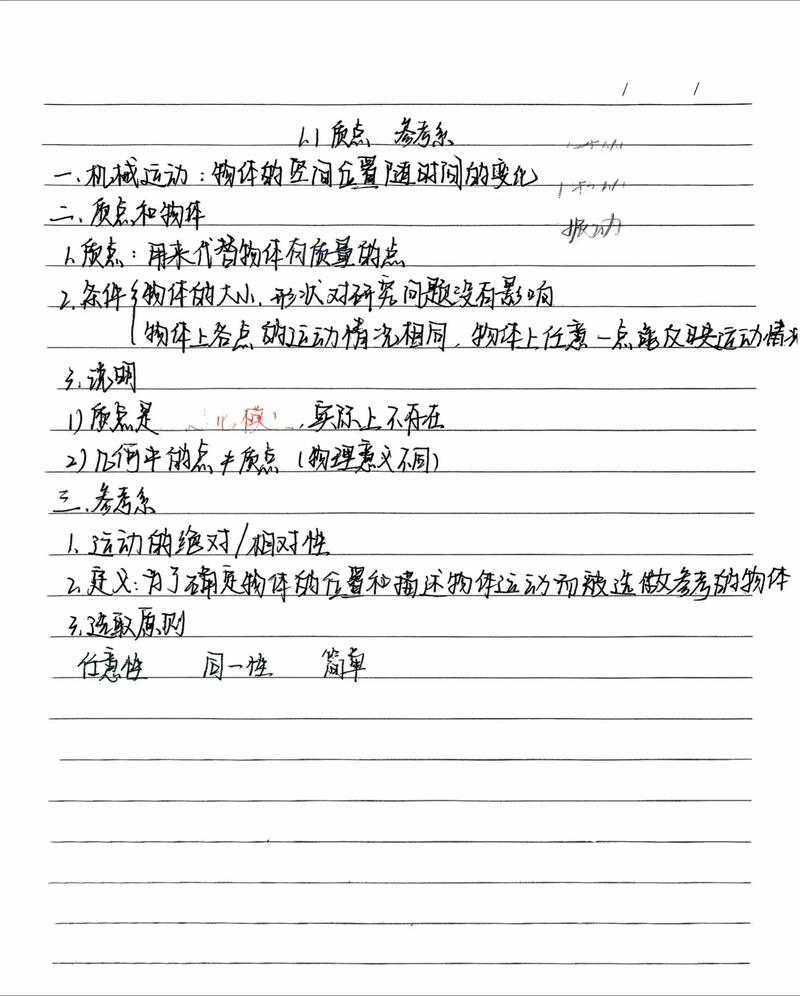 1.1 质点 参考系
一.机械运动：物体的空间位置随时间的变化
二.质点和物体
振动
1.质点：用来代替物体有质量的点
2.条件{物体的大小.形状对研究问题没有影响
物体上各点的运动情况相同.物体上任意一点能反映运动情
3.说明
1)质点是 化模 .实际上不存在
2)几何中的点≠质点(物理意义不同)
三.参考系
1.运动的绝对/相对性
2.定义:为了确定物体的位置和描述物体运动而被选做参考的物体
3.选取原则
任意性 同一性 简单